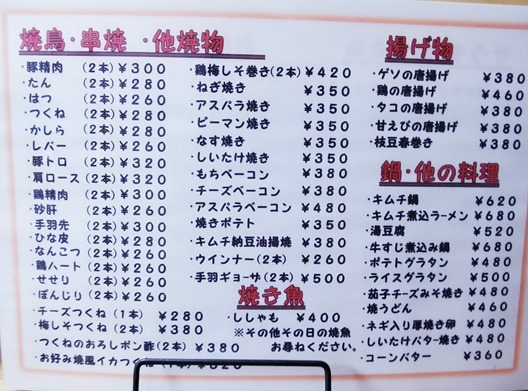 焼鳥・串焼・他焼物
・豚精肉 (2本)¥300
・たん (2本)¥280
・はつ (2本)¥260
・つくね (2本)¥280
・かしら (2本)¥280
・レバー (2本)¥260
・豚トロ (2本)¥320
・肩ロース(2本)¥320
・鶏精肉 (2本)¥300
・砂肝 (2本)¥260
・手羽先 (2本)¥300
・ひな皮 (2本)¥280
・なんこつ (2本)¥260
・鶏ハート (2本)¥260
・せせり (2本)¥260
・ぼんじり (2本)¥260
・チーズつくね (1本) ¥280
・梅しそつくね (2本) ¥380
・つくねのおろしポン酢(2本)¥380
・お好み焼風イカつくね
・鶏梅しそ巻き(2本)¥420
・ねぎ焼き ¥350
・アスパラ焼き ¥350
・ピーマン焼き ¥350
・なす焼き ¥350
・しいたけ焼き ¥350
・もちベーコン ¥380
・チーズベーコン ¥380
・アスパラベーコン ¥480
・焼きポテト ¥350
・キムチ納豆油揚焼 ¥380
・ウインナー(2本) ¥260
・手羽ギョーザ(2本) ¥500
焼き魚
・ししゃも ¥400
※その他その日の焼魚
お尋ねください。
揚げ物
・ゲソの唐揚げ ¥380
・鶏の唐揚げ ¥460
・タコの唐揚げ ¥380
・甘えびの唐揚げ ¥380
・枝豆春巻き ¥380
鍋・他の料理
・キムチ鍋 ¥620
・キムチ煮込ラーメン ¥680
・湯豆腐 ¥520
・牛すじ煮込み鍋 ¥680
・ポテトグラタン ¥480
・ライスグラタン ¥500
・茄子チーズみそ焼き ¥480
・焼うどん ¥460
・ネギ入り厚焼き卵 ¥480
・しいたけバター焼き ¥480
・コーンバター ¥360